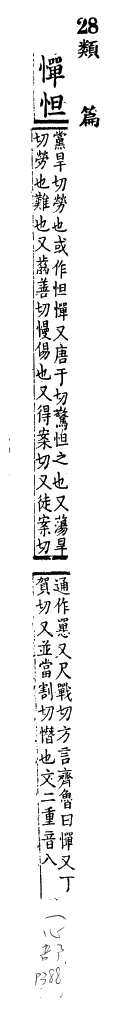 28類
篇
憚怛
黨旱切勞也或作怛憚又唐干切驚怛之也又蕩旱
切勞也難也又蕩善切慢傷也又得案切又徒案切
通作癉又尺戰切方言齊魯曰憚又丁
賀切又並當割切憯也文二重音入
一
心
P388